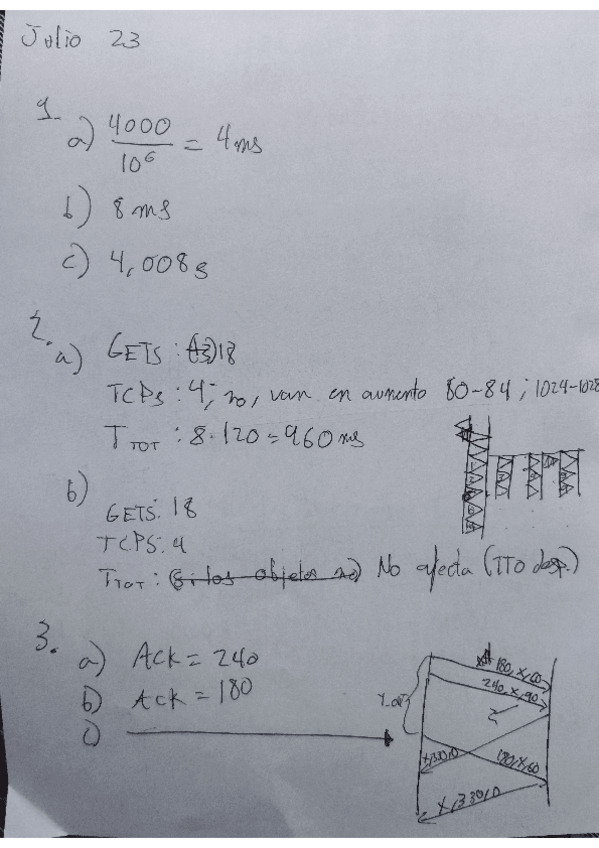 Julio 23
1.
a) 4000 / 10⁶ = 4ms
b) 8 ms
c) 4,008s
2.
a) GETS: 18
TCPs: 4; no, van en aumento 80-84; 1024-1028
T_TOT: 8·120 = 960 ms
b)
GETS: 18
TCPS: 4
T_TOT: (Si los objetos no) No afecta (TTO desp.)
3.
a) ACK = 240
b) ACK = 180
c)
180, X, 60
240, X, 90
X,330,0
180,X,60
X,330,0